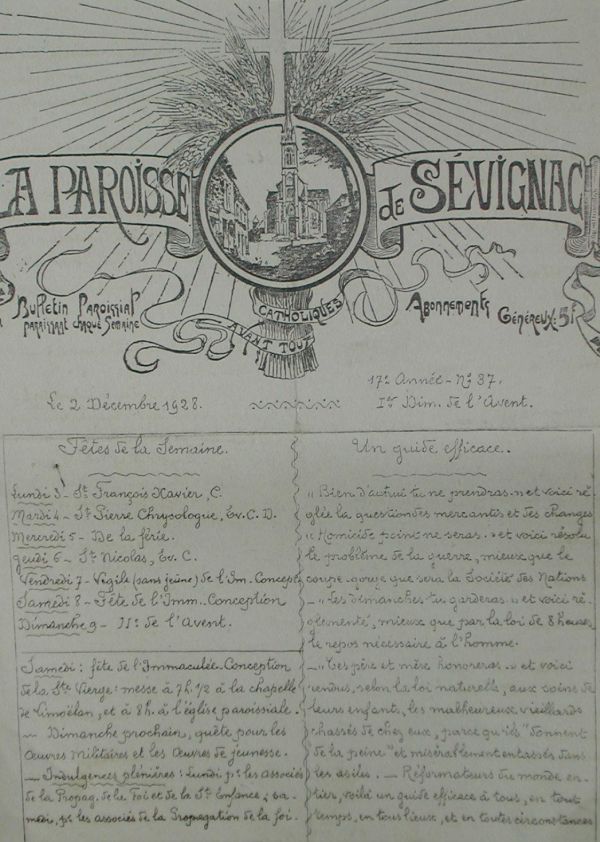 LA PAROISSE de SÉVIGNAC
Bulletin Paroissial
paraissant chaque Semaine
CATHOLIQUES
AVANT TOUT
Abonnements
Généreux: 5f
17e Année - No 37.
Le 2 Décembre 1928.
Ier Dim. de l'Avent.
Fêtes de la Semaine.
Lundi 3 - St François Xavier, C.
Mardi 4 - St Pierre Chrysologue, Ev. C. D.
Mercredi 5 - De la férie.
Jeudi 6 - St Nicolas, Ev. C.
Vendredi 7 - Vigile (sans jeûne) de l'Im. Concept
Samedi 8 - Fête de l'Imm. Conception
Dimanche 9 - IIe de l'Avent.
Samedi: fête de l'Immaculée-Conception
de la Ste Vierge: messe à 7h. 1/2 à la chapelle
de Limoëlan, et à 8h. à l'église paroissiale.
— Dimanche prochain, quête pour les
Œuvres Militaires et les Œuvres de jeunesse.
— Indulgences plénières: Lundi pr les associés
de la Propag. de la Foi et de la Ste Enfance; sa-
medi, pr les associés de la Propagation de la foi.
Un guide efficace.
"Bien d'autrui tu ne prendras." et voici ré-
glée la question des mercantis et des changes
"Homicide point ne seras." et voici résolu
le problème de la guerre, mieux que le
que sera la Société des Nations
— "Les dimanches tu garderas" et voici ré-
mieux que par la loi de 8 heures
le repos nécessaire à l'homme.
— "Tes père et mère honoreras." et voici
rendus, selon la loi naturelle, aux soins de
leurs enfants, les malheureux vieillards
chassés de chez eux, parce qu'ils "donnent
de la peine" et misérablement entassés dans
les asiles. — Réformateurs du monde en-
tier, voilà un guide efficace à tous, en tout
temps, en tous lieux, et en toutes circonstances